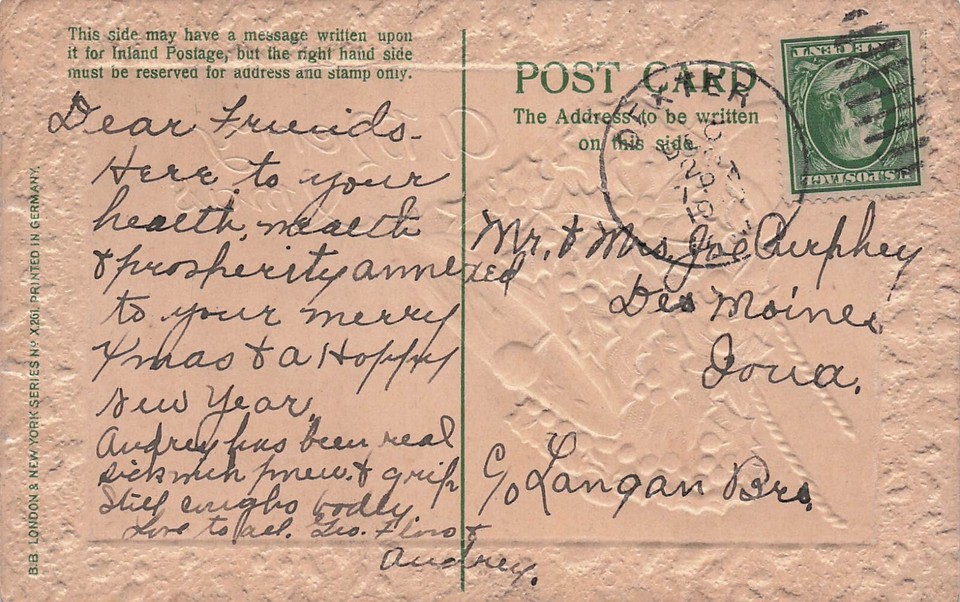 This side may have a message written upon
it for Inland Postage, but the right hand side
must be reserved for address and stamp only.
Dear Friends-
Here to your
health, wealth
& prosperity annexed
to your merry
Xmas & a Happy
New Year.
Audrey has been real
sick with pneu. & grip
Still coughs badly
Love to all. Geo. Floro &
Audrey.
POST CARD
The Address to be written
on this side.
DEXTER
DEC
Mr. & Mrs. Joe Purphey
Des Moines
Iowa.
c/o Langan Bros.
U.S. POSTAGE
CENTS
B.B. LONDON & NEW YORK SERIES No X261. PRINTED IN GERMANY.